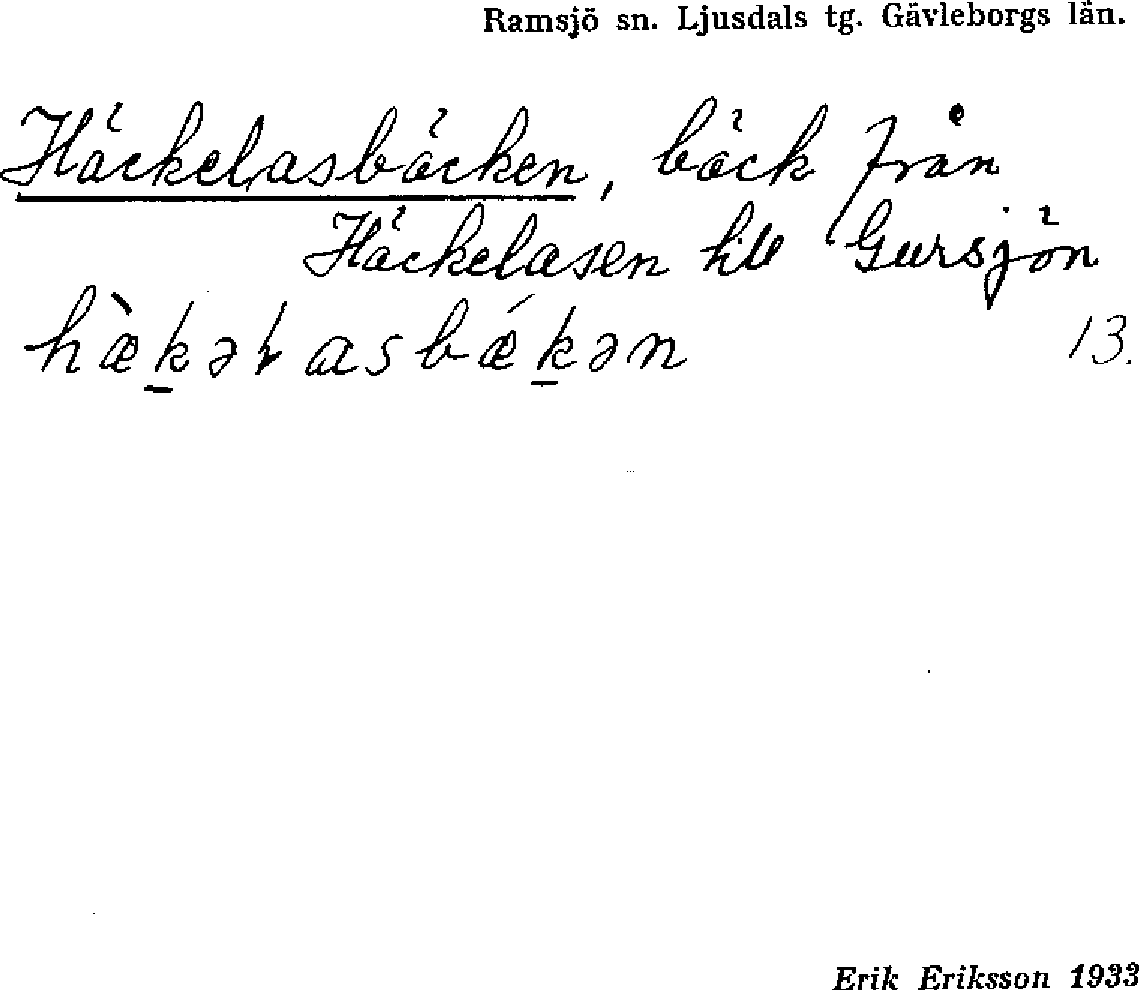 Ramsjö sn. Ljusdals tg. Gävleborgs län.
Häckelasbäcken, bäck från
Häckelasen till Gursjön
hæ̀k̠əɫasbǽk̠ən 13.
Erik Eriksson 1933